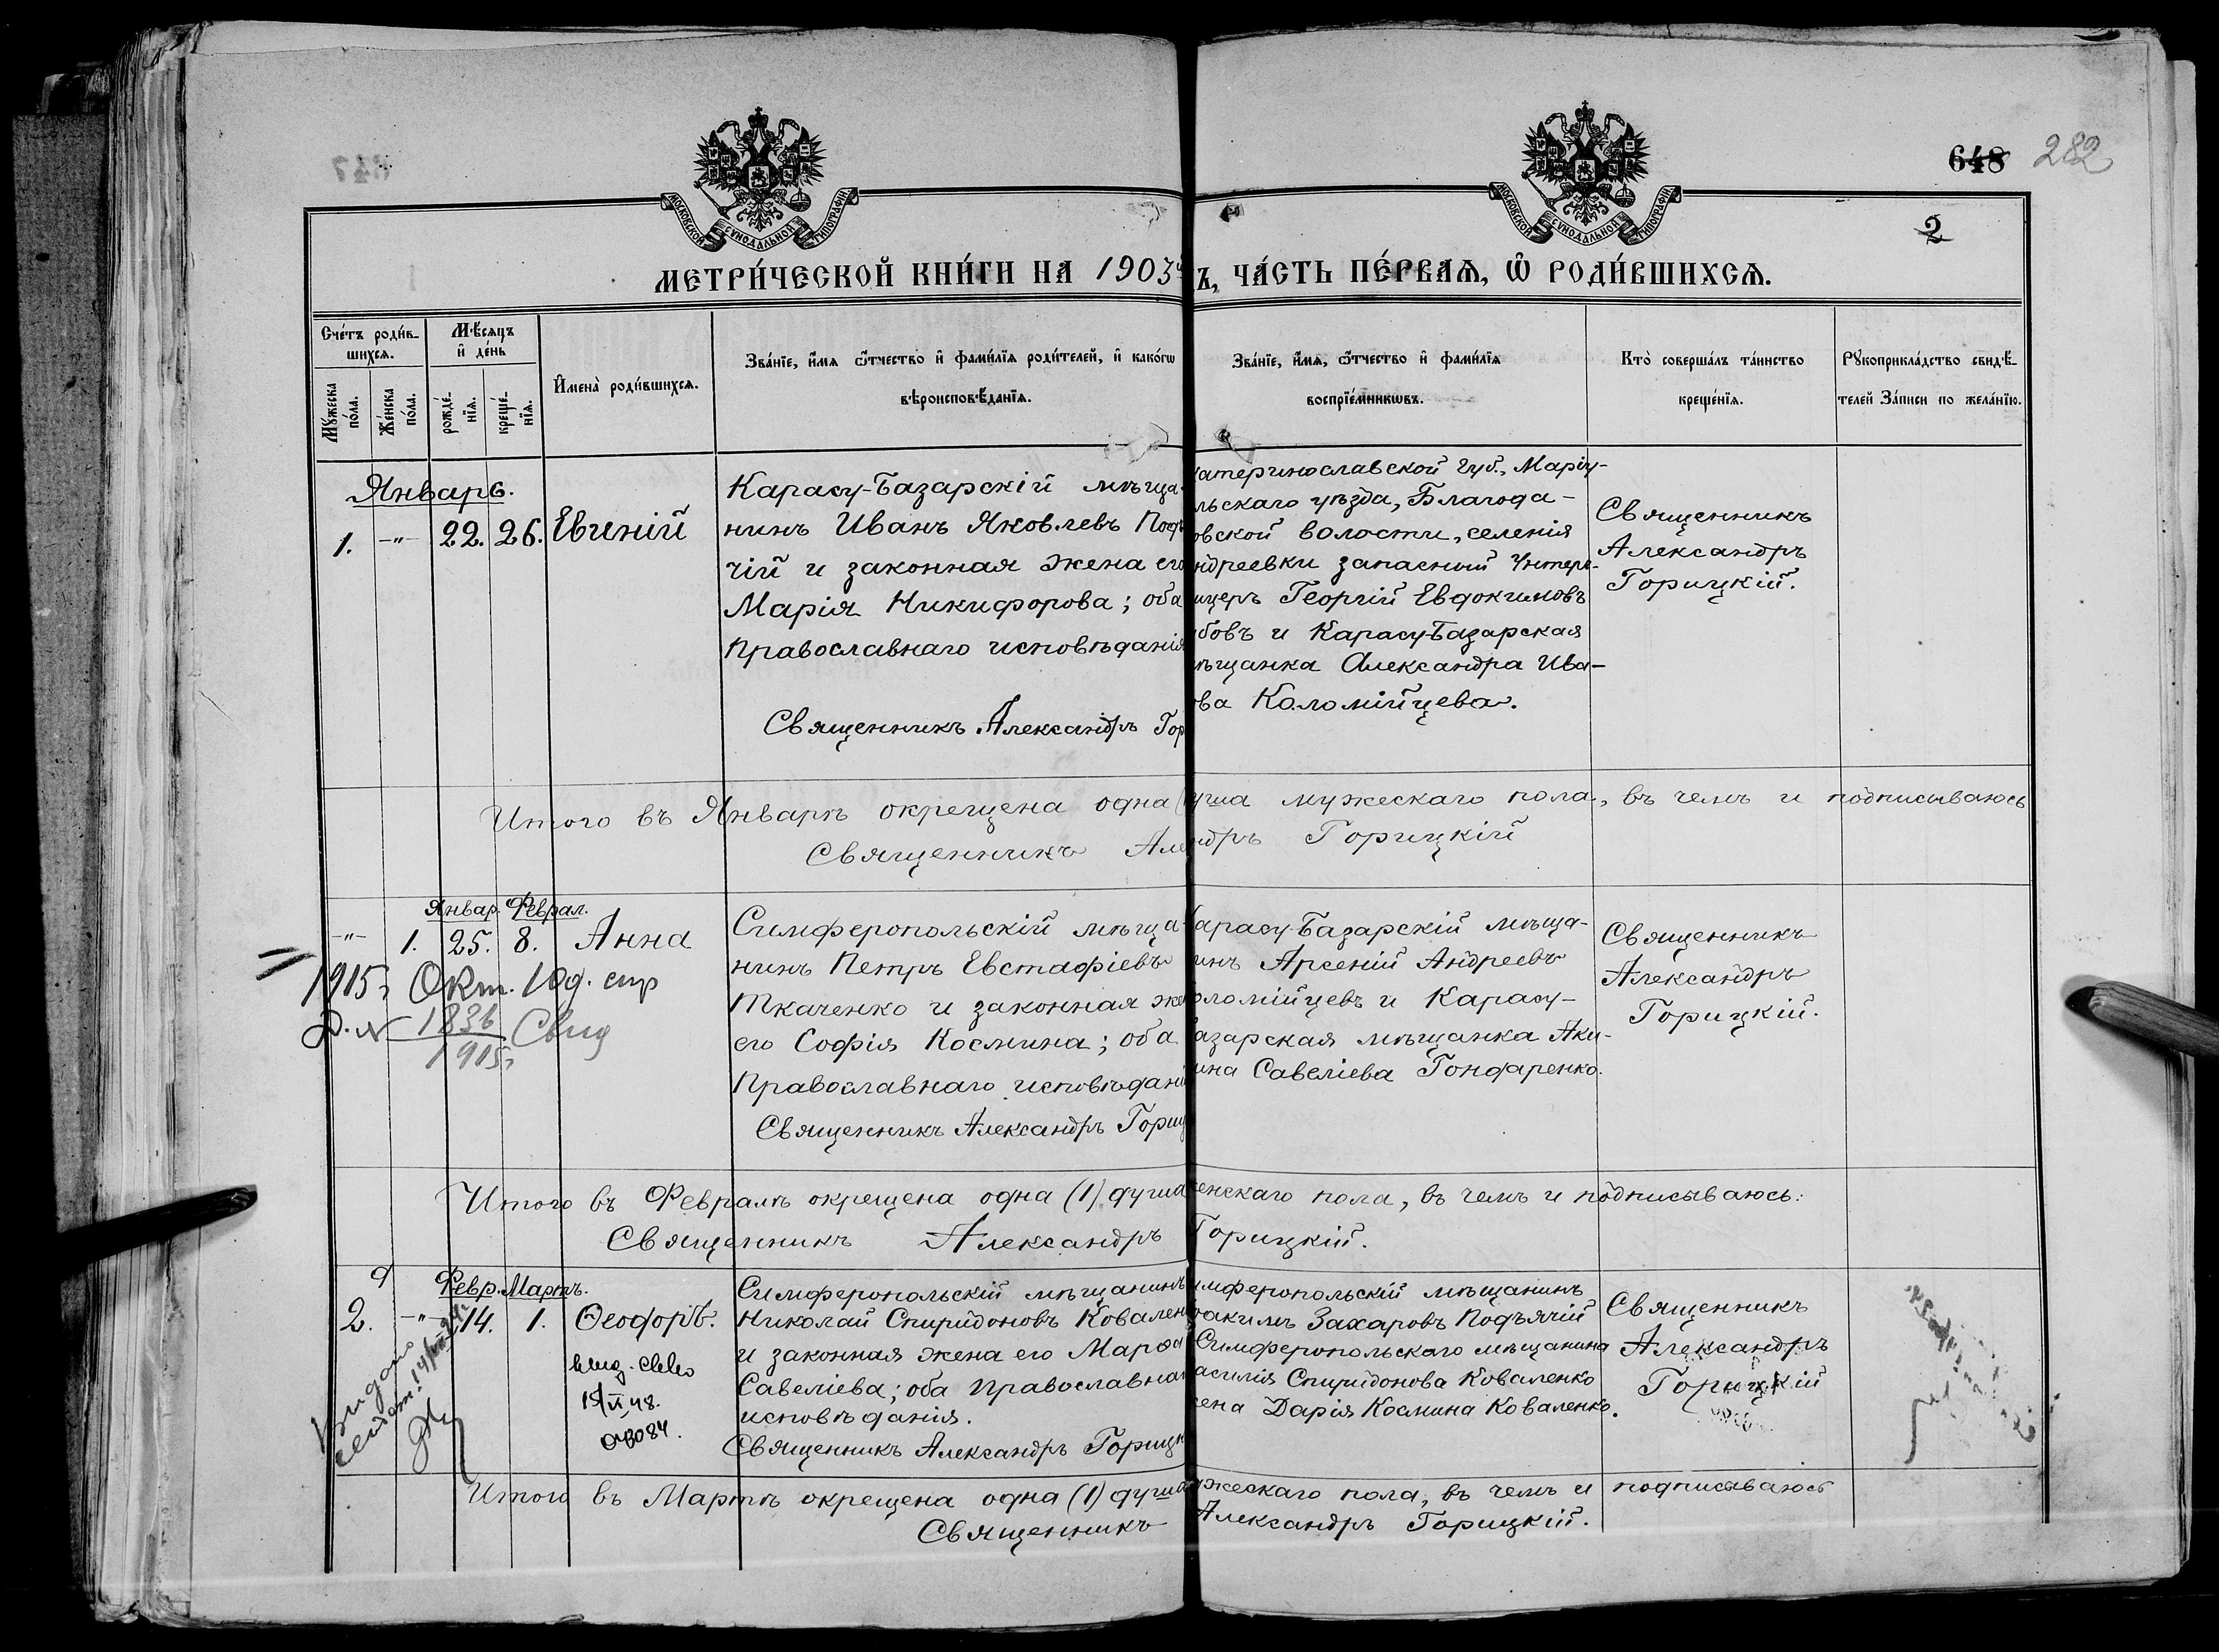 648 282
2
МОСКОВСКОЙ СѴНОДАЛЬНОЙ ТИПОГРАФІИ
МОСКОВСКОЙ СѴНОДАЛЬНОЙ ТИПОГРАФІИ
МЕТРИ́ЧЕСКОЙ КНИ́ГИ НА 1903
Ъ, ЧА́СТЬ ПЕ́РВАѦ, Ѿ РОДИ́ВШИХСѦ.
Сче́тъ роди́в-
шихсѧ.
Мꙋжеска по́ла.
Же́нска по́ла.
Мѣ́сѧцъ
и҆ де́нь
рожде́-
нїѧ.
креще́-
нїѧ.
И҆мена̀ роди́вшихсѧ.
Зва́нїе, и҆́мѧ ѻ҆́тчество и҆ фами́лїѧ роди́телей, и҆ како́гѡ
вѣроисповѣ́данїѧ.
Зва́нїе, и҆́мѧ, ѻ҆́тчество и҆ фами́лїѧ
воспрїе́мникѡвъ.
Кто̀ соверша́лъ та́инство
креще́нїѧ.
Рꙋкоприкла́дство свидѣ́-
телей За́писи по жела́нїю.
Январь.
1. -"- 22. 26. Евгеній
Карасу-Базарскій мѣща-
нинъ Иванъ Яковлевъ Подъ
чій и законная жена его
Марія Никифорова; оба
Православнаго исповѣданія
Священникъ Александръ Гор
катеринославской Губ., Маріу-
льскаго уѣзда, Благода-
овской волости, селенія
ндреевки запасный Унтеръ-
ицеръ Георгій Евдокимовъ
бовъ и Карасу-Базарская
ѣщанка Александра Ива-
ова Коломійцева.
Священникъ
Александръ
Горицкій.
Итого въ Январѣ окрещена одна (уша мужескаго пола, въ чемъ и подписываюсь
Священникъ Але ндръ Горицкій
Январ. Феврал.
-"- 1. 25. 8. Анна
1915 г. Окт. 10 д.
1836
1915 г.
Симферопольскій мѣща-
нинъ Петръ Евстафіевъ
Ткаченко и законная же
его Софія Космина; оба
Православнаго исповѣдані
Священникъ Александръ Гориц
Карасу-Базарскій мѣща-
инъ Арсеній Андреевъ
оломійцевъ и Карасу-
Базарская мѣщанка Аки-
ина Савеліева Гондаренко.
Священникъ
Александръ
Горицкій.
Итого въ Февралѣ окрещена одна (1) душа женскаго пола, въ чемъ и подписываюсь:
Священникъ Александръ Горицкій.
Февр. Мартъ.
2. -"- 14. 1. Ѳеодоръ.
Выдано
48.
Симферопольскій мѣщанинъ
Николай Спиридоновъ Ковален
и законная жена его Марѳа
Савеліева; оба Православна
исповѣданія.
Священникъ Александръ Горицк
имферопольскій мѣщанинъ
оакимъ Захаровъ Подъячій
Симферопольскаго мѣщанина
асилія Спиридонова Коваленко
ена Дарія Космина Коваленко.
Священникъ
Александръ
Горицкій
Итого въ Мартѣ окрещена одна (1) душа ужескаго пола, въ чемъ и подписываюсь
Священникъ Александръ Горицкій.